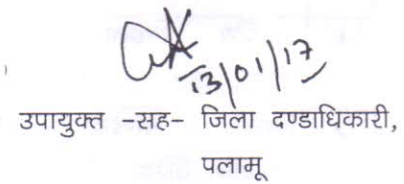 13/01/17
उपायुक्त -सह- जिला दण्डाधिकारी,
पलामू